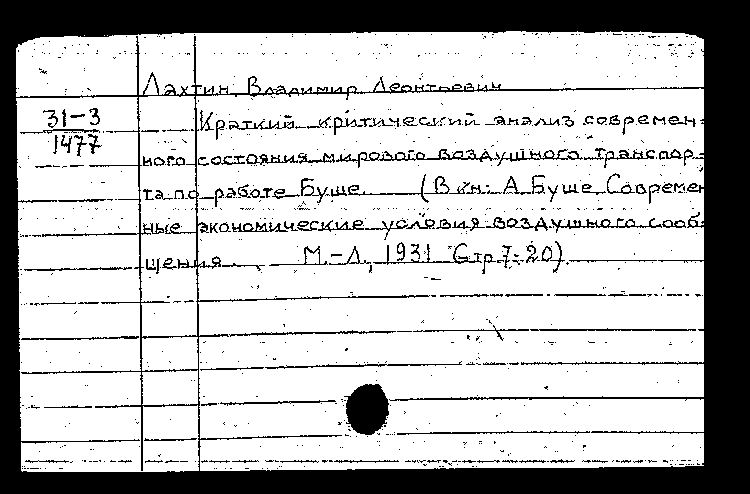 Лахтин, Владимир Леонтьевич
31-3
1477
Краткий критический анализ современ-
ного состояния мирового воздушного транспор-
та по работе Буше. (В кн: А. Буше. Современ
ные экономические условия воздушного сооб-
щения. М.-Л., 1931 Стр. 7-20).